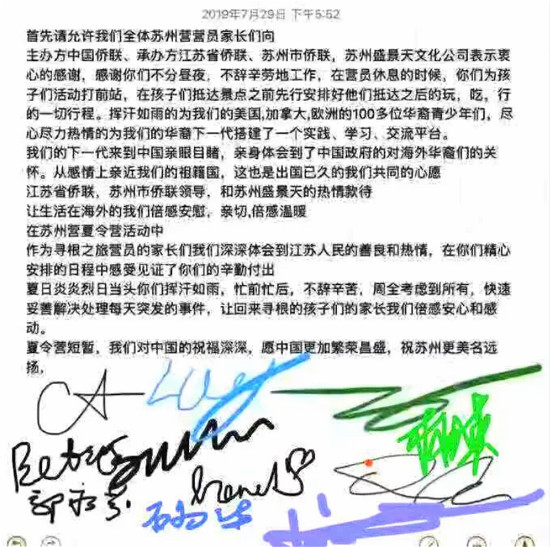 2019年7月29日 下午5:52
首先请允许我们全体苏州营营员家长们向
主办方中国侨联、承办方江苏省侨联、苏州市侨联，苏州盛景天文化公司表示衷
心的感谢，感谢你们不分昼夜，不辞辛劳地工作，在营员休息的时候，你们为孩
子们活动打前站，在孩子们抵达景点之前先行安排好他们抵达之后的玩，吃，行
的一切行程。挥汗如雨的为我们的美国,加拿大,欧洲的100多位华裔青少年们，尽
心尽力热情的为我们的华裔下一代搭建了一个实践、学习、交流平台。
我们的下一代来到中国亲眼目睹，亲身体会到了中国政府的对海外华裔们的关
怀。从感情上亲近我们的祖籍国，这也是出国已久的我们共同的心愿
江苏省侨联，苏州市侨联领导，和苏州盛景天的热情款待
让生活在海外的我们倍感安慰，亲切,倍感温暖
在苏州营夏令营活动中
作为寻根之旅营员的家长们我们深深体会到江苏人民的善良和热情，在你们精心
安排的日程中感受见证了你们的辛勤付出
夏日炎炎烈日当头你们挥汗如雨，忙前忙后，不辞辛苦，周全考虑到所有，快速
妥善解决处理每天突发的事件，让回来寻根的孩子们的家长我们倍感安心和感
动。
夏令营短暂，我们对中国的祝福深深，愿中国更加繁荣昌盛，祝苏州更美名远
扬。